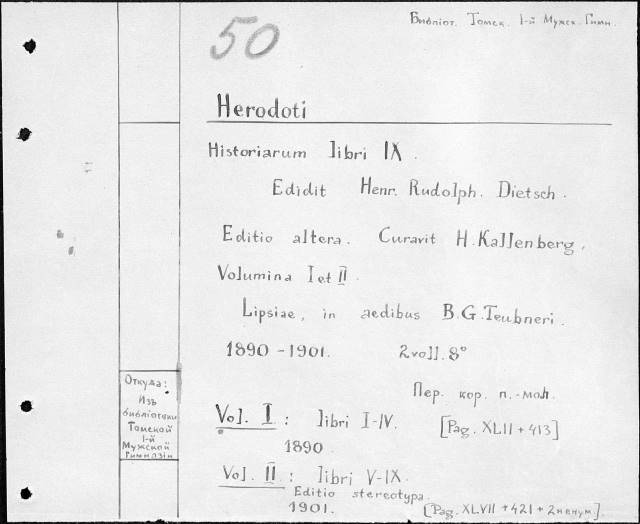 Библіот. Томск. 1-й Мужск. Гимн.
50
Herodoti
Historiarum libri IX.
Edidit Henr. Rudolph. Dietsch.
Editio altera. Curavit H. Kallenberg.
Volumina I et II.
Lipsiae, in aedibus B.G. Teubneri.
1890-1901. 2 voll. 8°
Пер. кор. п.-мол.
Откуда:
Изъ
библіотеки
Томской
1-й
Мужской
Гимназіи
Vol. I: libri I-IV. [Pag. XLII + 413]
1890.
Vol. II: libri V-IX.
Editio stereotypa.
1901. [Pag. XLVII + 421 + 2 ненум.].